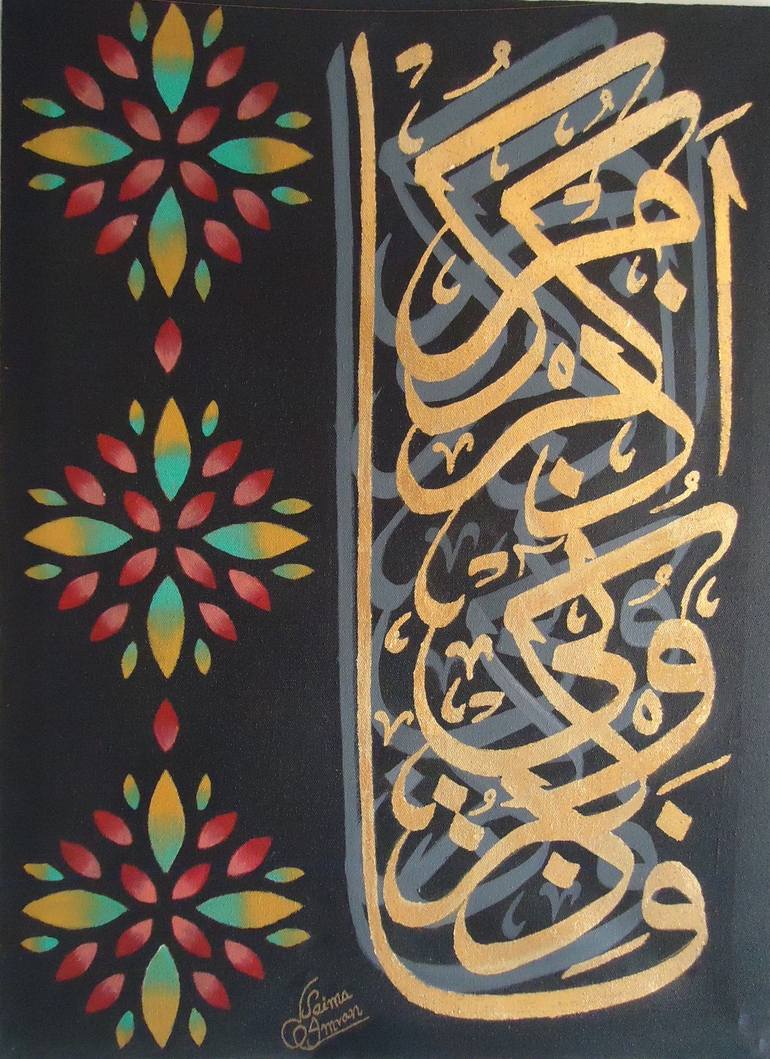 فَاذْكُرُونِي أَذْكُرْكُمْ
Saima
Imran